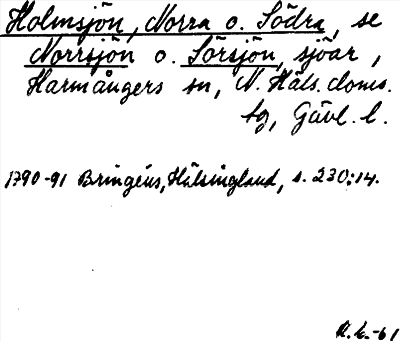 Holmsjön, Norra o. Södra, se
Norrsjön o. Sörsjön, sjöar,
Harmångers sn, N. Häls. doms.
tg, Gävl. l.
1790-91 Bringéus, Hälsingland, s. 230:14.
R.L.-61